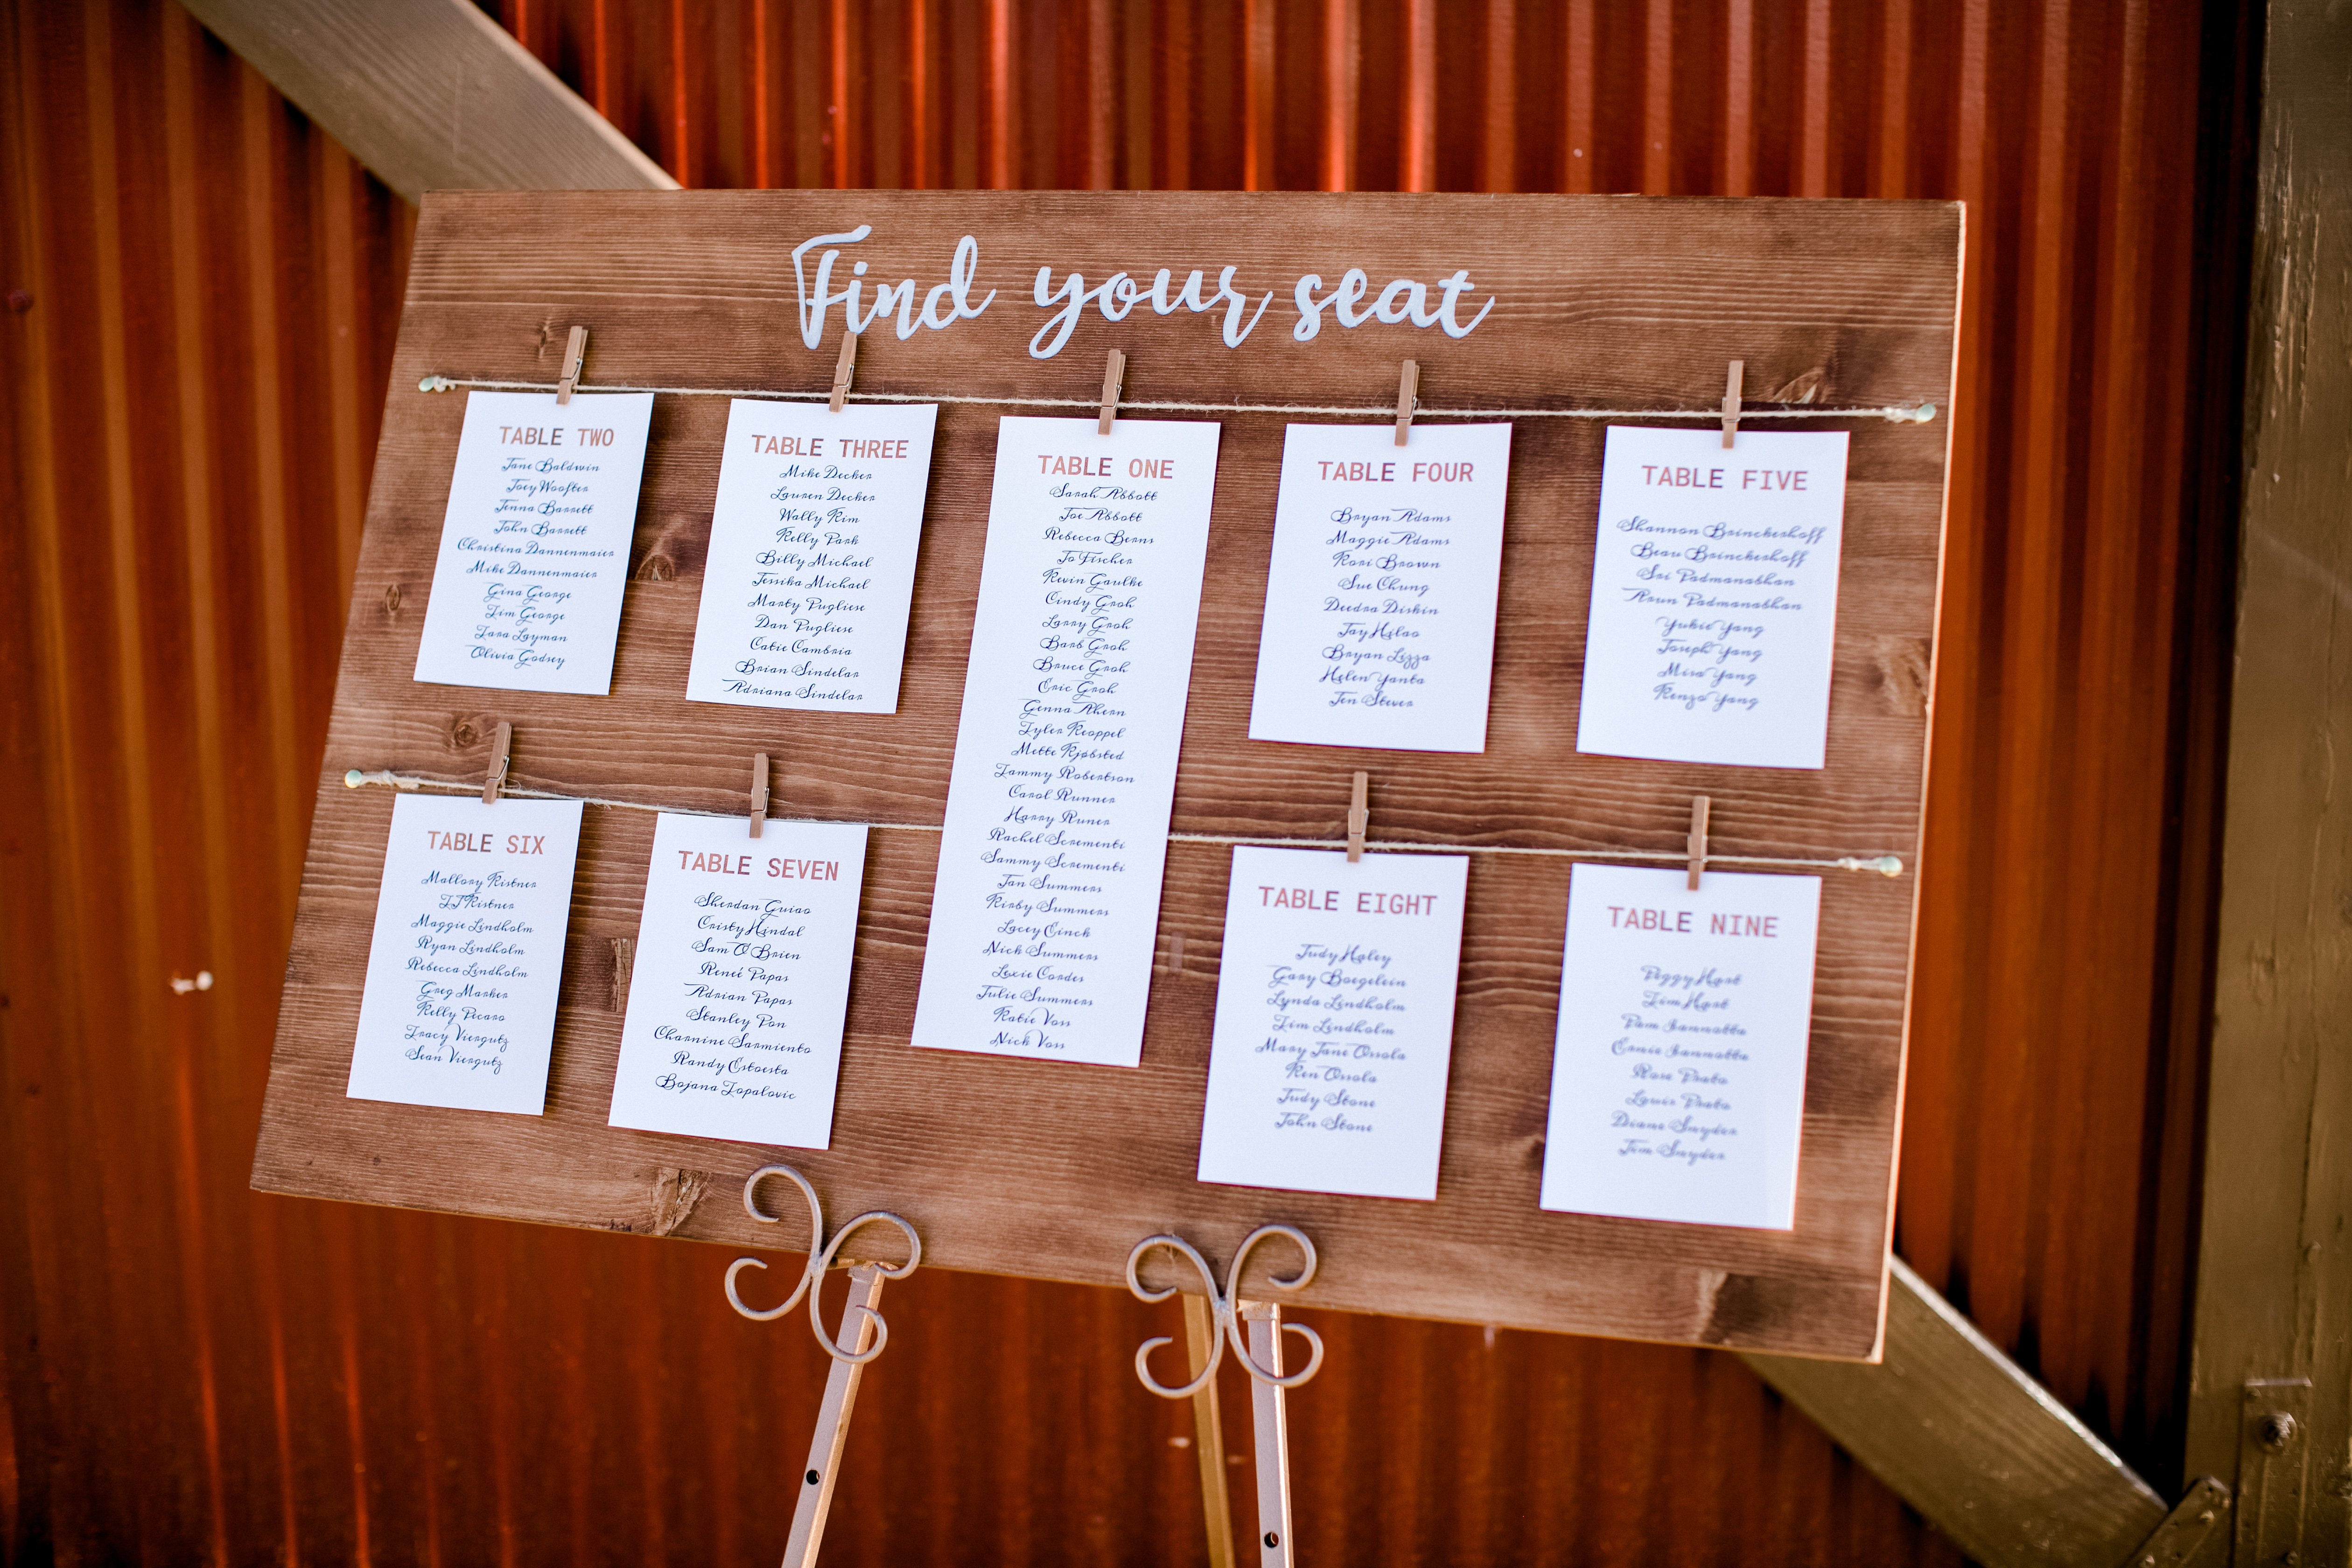 Find your seat
TABLE TWO
Jane Baldwin
Joey Woofter
Jenna Barrett
John Barrett
Christina Dannenmaier
Mike Dannenmaier
Gina George
Jim George
Tara Layman
Olivia Godsey
TABLE THREE
Mike Decker
Lauren Decker
Wally Kim
Kelly Park
Billy Michael
Jessika Michael
Marty Pugliese
Dan Pugliese
Catie Cambria
Brian Sindelar
Adriana Sindelar
TABLE ONE
Sarah Abbott
Joe Abbott
Rebecca Berns
Jo Fischer
Kevin Gaulke
Cindy Groh
Larry Groh
Barb Groh
Bruce Groh
Eric Groh
Genna Ahern
Tyler Keappel
Mette Kjøbsted
Tammy Robertson
Carol Runner
Harry Runer
Rachel Scrementi
Sammy Scrementi
Jan Summers
Kirby Summers
Lacey Einck
Nick Summers
Lexie Cordes
Julie Summers
Katie Voss
Nick Voss
TABLE FOUR
Bryan Adams
Maggie Adams
Kori Brown
Sue Chung
Deedra Diskin
Jay Hilao
Bryan Lizza
Helen Yanta
Jen Stever
TABLE FIVE
Shannon Brinckerhoff
Beau Brinckerhoff
Sri Padmanabhan
Arun Padmanabhan
Yukie Yang
Joseph Yang
Misa Yang
Kenzo Yang
TABLE SIX
Mallory Kistner
TJ Kistner
Maggie Lindholm
Ryan Lindholm
Rebecca Lindholm
Greg Marker
Kelly Picaro
Tracy Viergutz
Sean Viergutz
TABLE SEVEN
Sherdan Guiao
Cristy Hindal
Sam O'Brien
Reneé Papas
Adrian Papas
Stanley Pon
Charnine Sarmiento
Randy Estoesta
Bojana Topalovic
TABLE EIGHT
Judy Haley
Gary Boegelein
Lynda Lindholm
Jim Lindholm
Mary Jane Ossola
Ken Ossola
Judy Stone
John Stone
TABLE NINE
Peggy Hart
Jim Hart
Pam Iannotta
Ernie Iannotta
Rose Prato
Louis Prato
Diane Snyder
Jim Snyder